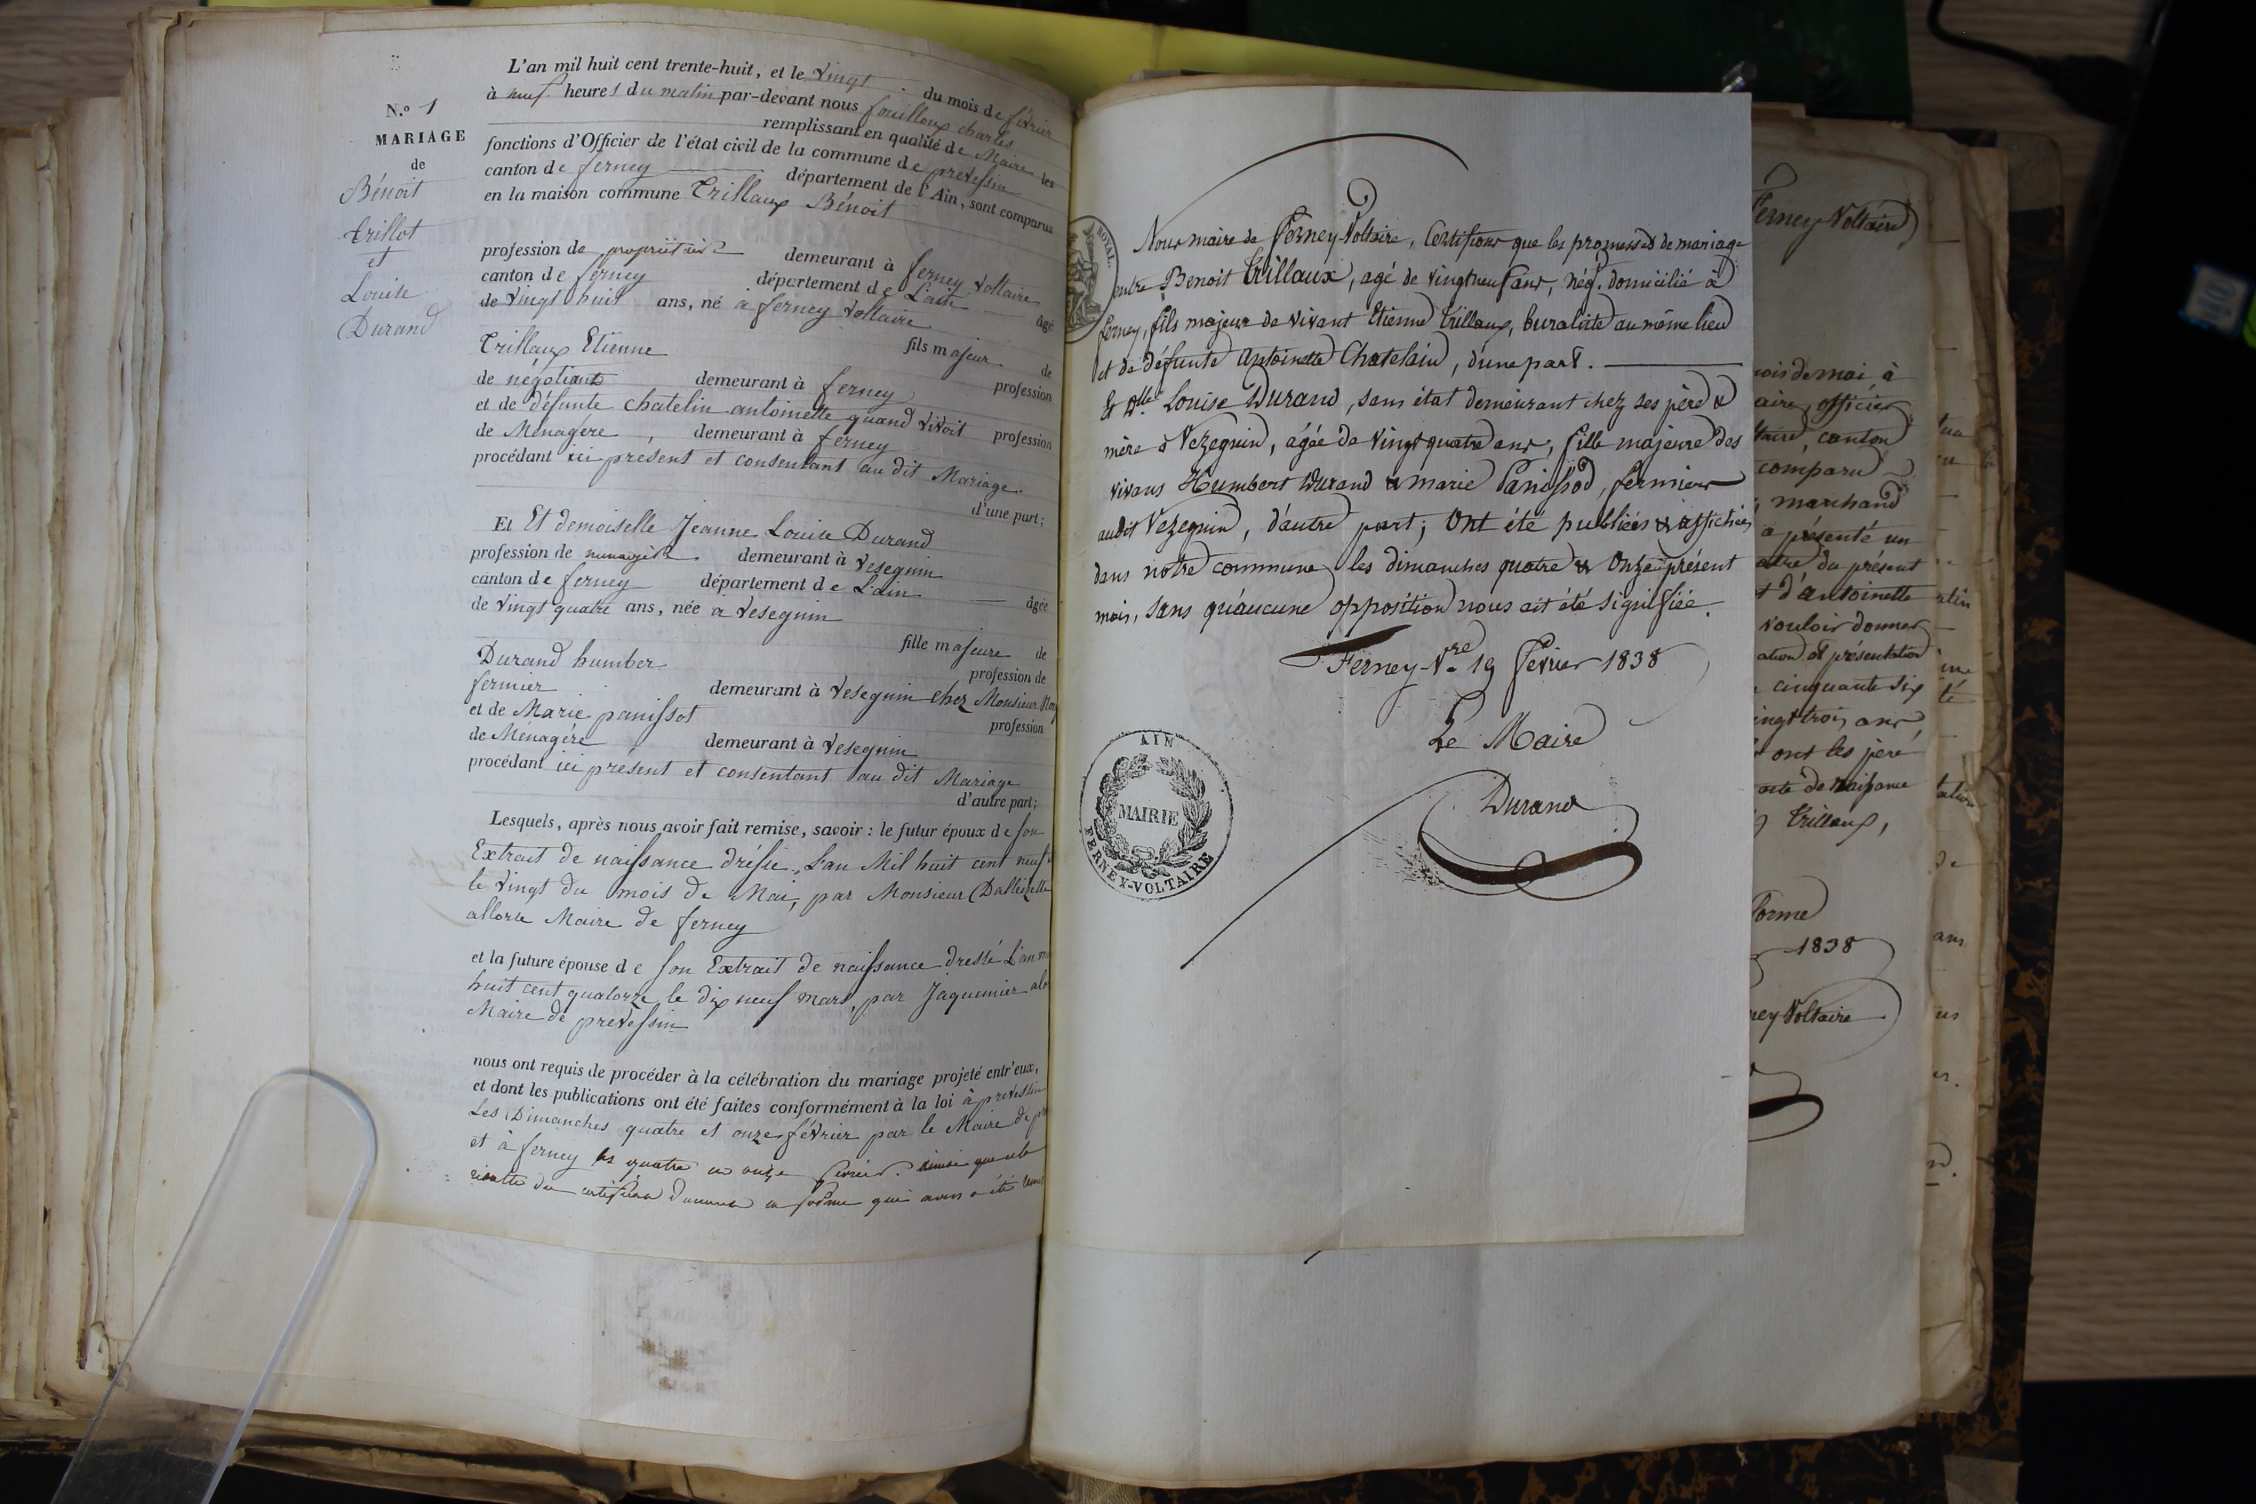 L'an mil huit cent trente-huit, et le vingt du mois de février
à neuf heures du matin par-devant nous fouilloux charles
remplissant en qualité de Maire les
fonctions d'Officier de l'état civil de la commune de prevessin
canton de ferney département de l'Ain, sont comparus
en la maison commune Trillaux Bénoit
N.º 1
MARIAGE
de
Bénoit
trillot
et
Louise
Durand
profession de propriétaire demeurant à ferney voltaire
canton de ferney département de L'ain âgé
de vingt huit ans, né à ferney voltaire
fils majeur de
Trillaux Etienne profession
de négotiant demeurant à ferney
et de défunte chatelin antoinette quand vivoit profession
de Ménagere, demeurant à ferney
procédant ici présent et consentant au dit Mariage
d'une part;
Et Et demoiselle Jeanne Louise Durand
profession de menagère demeurant à vesegnin
canton de ferney département de L'ain âgée
de vingt quatre ans, née a vesegnin
fille majeure de
Durand humber profession de
fermier demeurant à vesegnin chez Monsieur
et de Marie panissot profession
de Ménagére demeurant à vesegnin
procédant ici présent et consentant au dit Mariage
d'autre part;
Lesquels, après nous avoir fait remise, savoir : le futur époux de son
Extrait de naissance dréssé, L'an Mil huit cent neuf
le vingt du mois de Mai, par Monsieur
allors Maire de ferney
et la future épouse de son Extrait de naissance dressé L'an
huit cent quatorze le dix neuf mars, par Jaquemier
Maire de prevessin
nous ont requis de procéder à la célébration du mariage projeté entr'eux,
et dont les publications ont été faites conformément à la loi à prevessin
Les Dimanches quatre et onze février par le Maire de
et à ferney les quatre et onze février. ainsi que cela
résulte du certificat en forme qui nous a été
ROYAL.
Nous maire de Ferney-Voltaire, Certifions que les promesses de mariage
entre Benoit Trillaux, agé de vingtneuf ans, nég.t domicilié à
ferney, fils majeur de vivant Etienne Trillaux, buraliste au même lieu
et de défunte Antoinette Chatelain, d'une part.
Et Dlle Louise Durand, sans état demeurant chez ses père &
mère à Vezegnin, âgée de vingt quatre ans, fille majeure des
vivans Humbert Durand & marie Panissod, fermiers
audit Vezegnin, d'autre part; Ont été publiées & affichées
dans notre commune les dimanches quatre & Onze présent
mois, sans qu'aucune opposition nous ait été signifiée.
Ferney-Vre 19 Février 1838
Le Maire
Durand
AIN
MAIRIE
FERNEX-VOLTAIRE
Ferney Voltaire
mois de mai à
officier
canton
comparu
marchand
a présenté un
du présent
d'antoinette
vouloir donner
présentation
cinquante six
vingt trois ans
ont les père
acte de naissance
Trillaux,
forme
1838
Voltaire